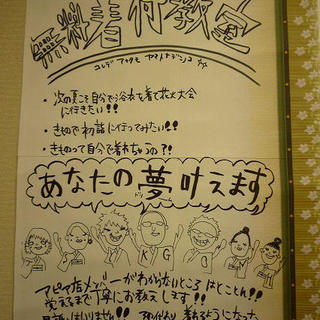 無料着付教室
コレデ アナタモ ヤマトナデシコ
・次の夏こそ自分で浴衣を着て花火大会
に行きたい!!
・きもので初詣に行ってみたい!!
・きものって自分で着れちゃうの?!
あなたの夢叶えます
K G
アピア店メンバーがわからないところはとことん!!
覚えるまで丁寧にお教えします!!
着れるようになった